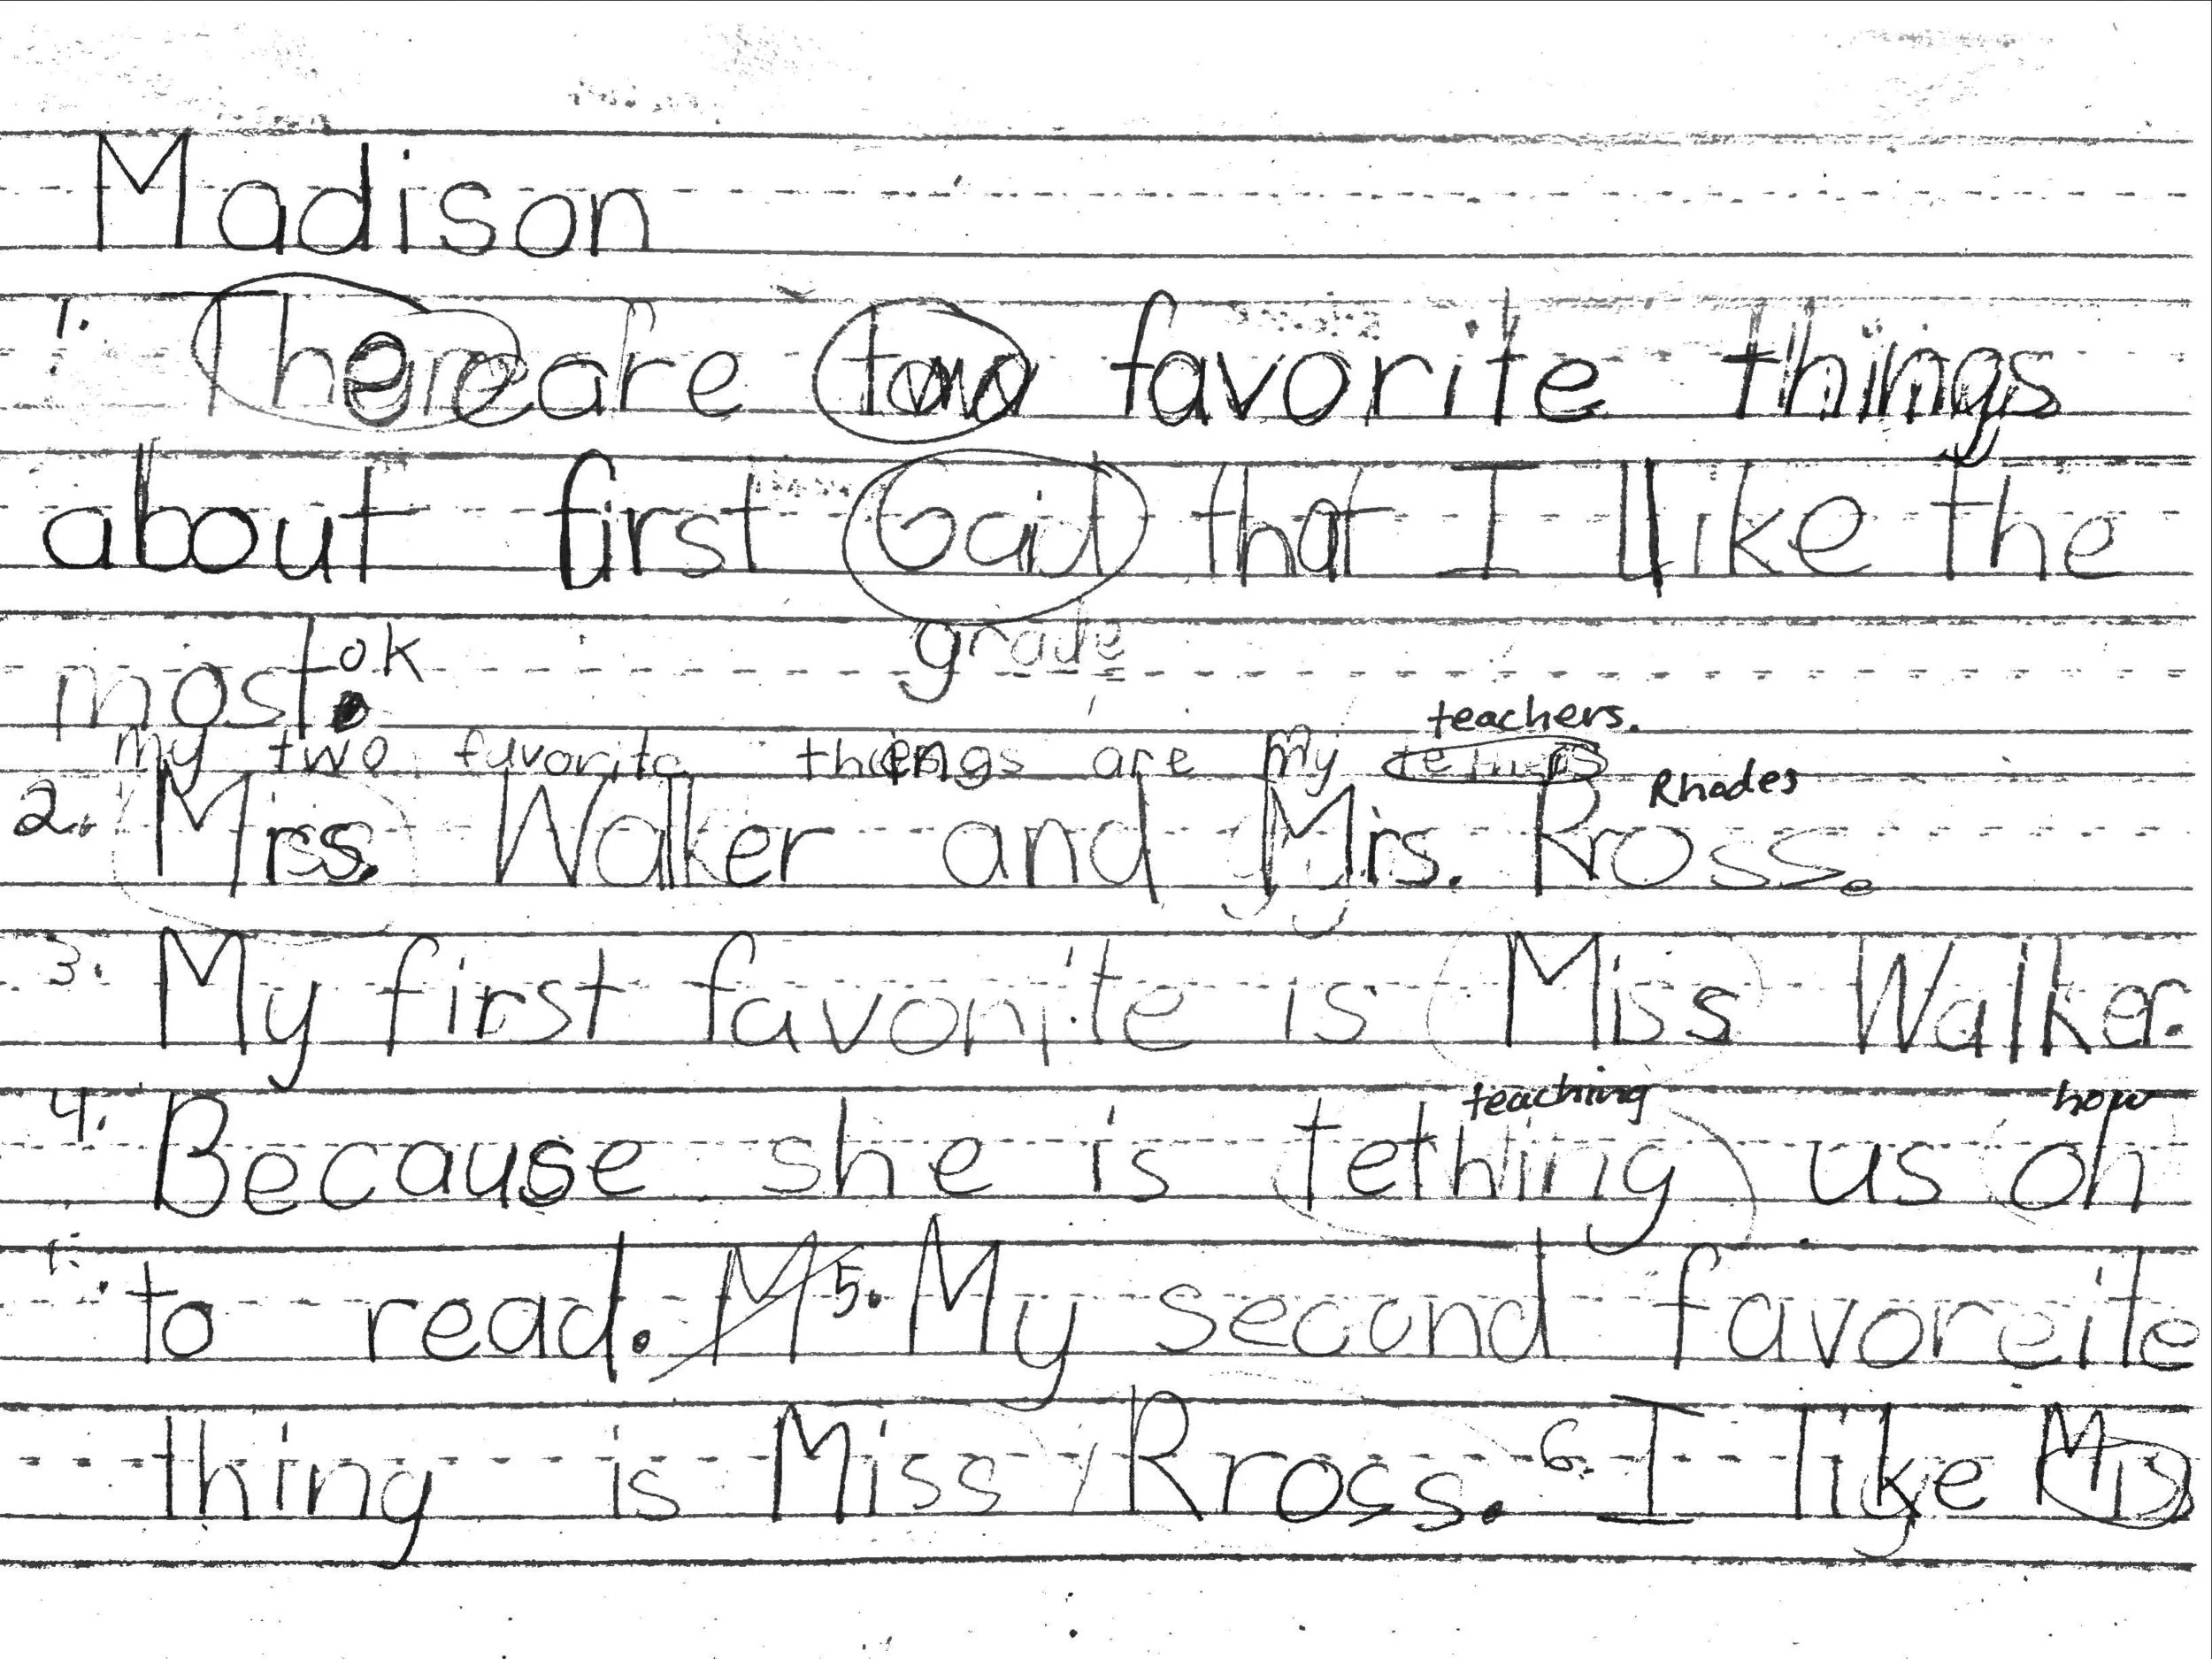 Madison
1. There are two favorite things
about first Gaid that I like the
grade
most. ok
teachers.
my two favorite things are my
Rhades
2. Mrs. Walker and Mrs. Rross.
3. My first favorite is Miss Walker.
teaching how
4. Because she is tething us oh
to read. M 5. My second favoreite
thing is Miss Rross. 6. I like Mis